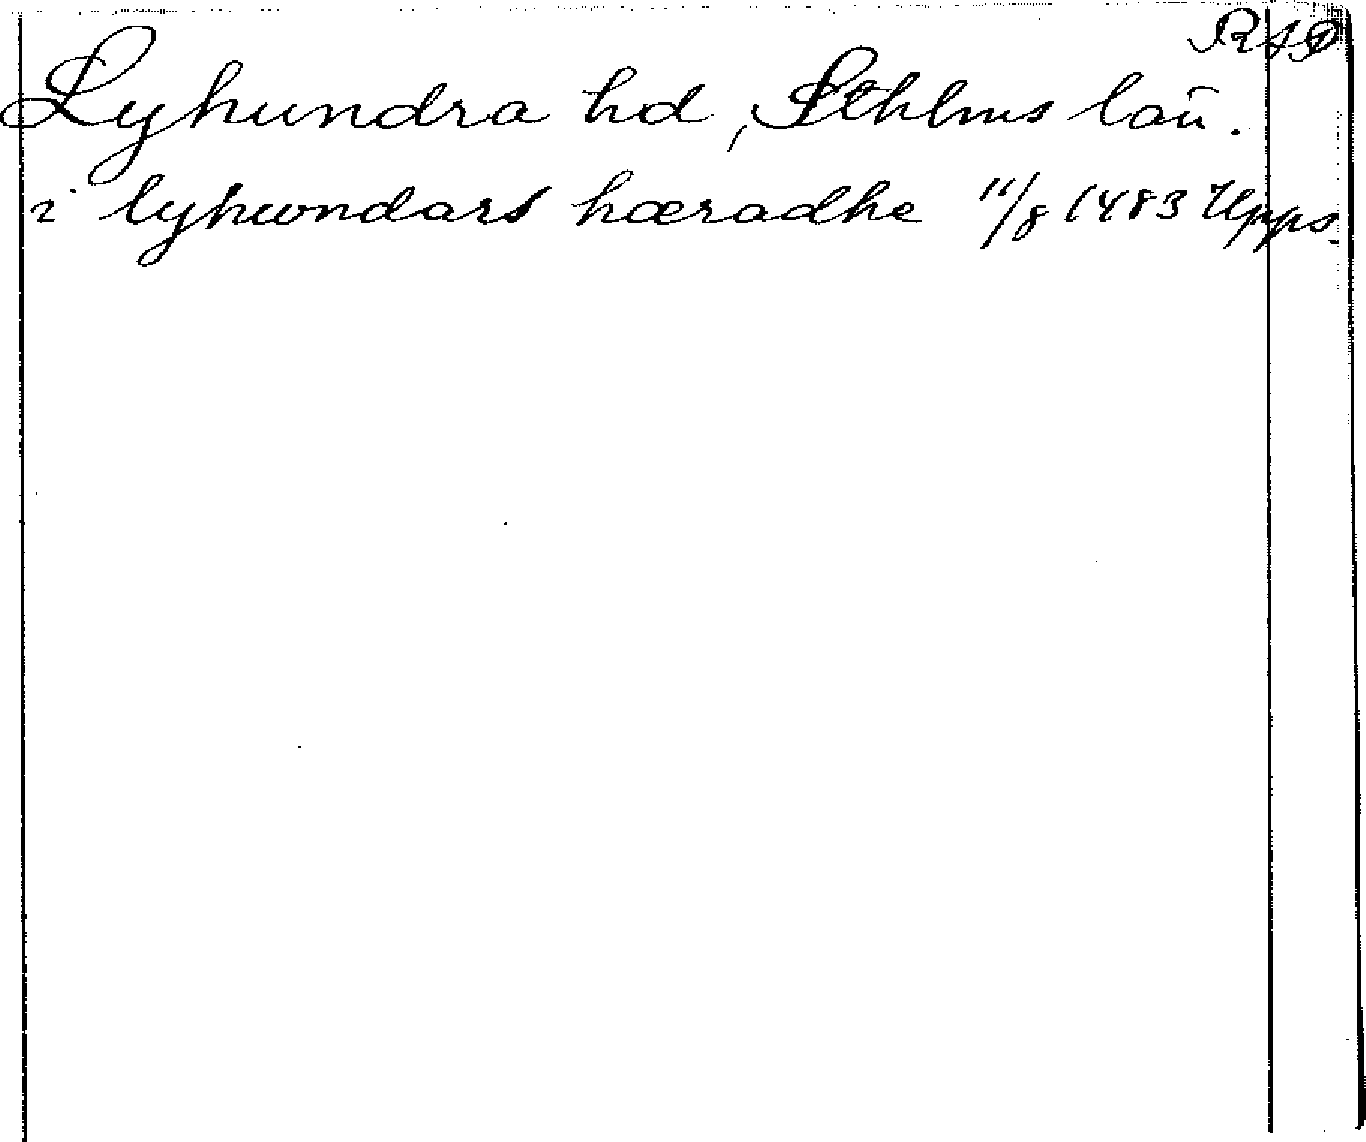 RAP
Lyhundra hd, Sthlms län.
i lyhwndars hæradhe 11/8 1483 Upps.